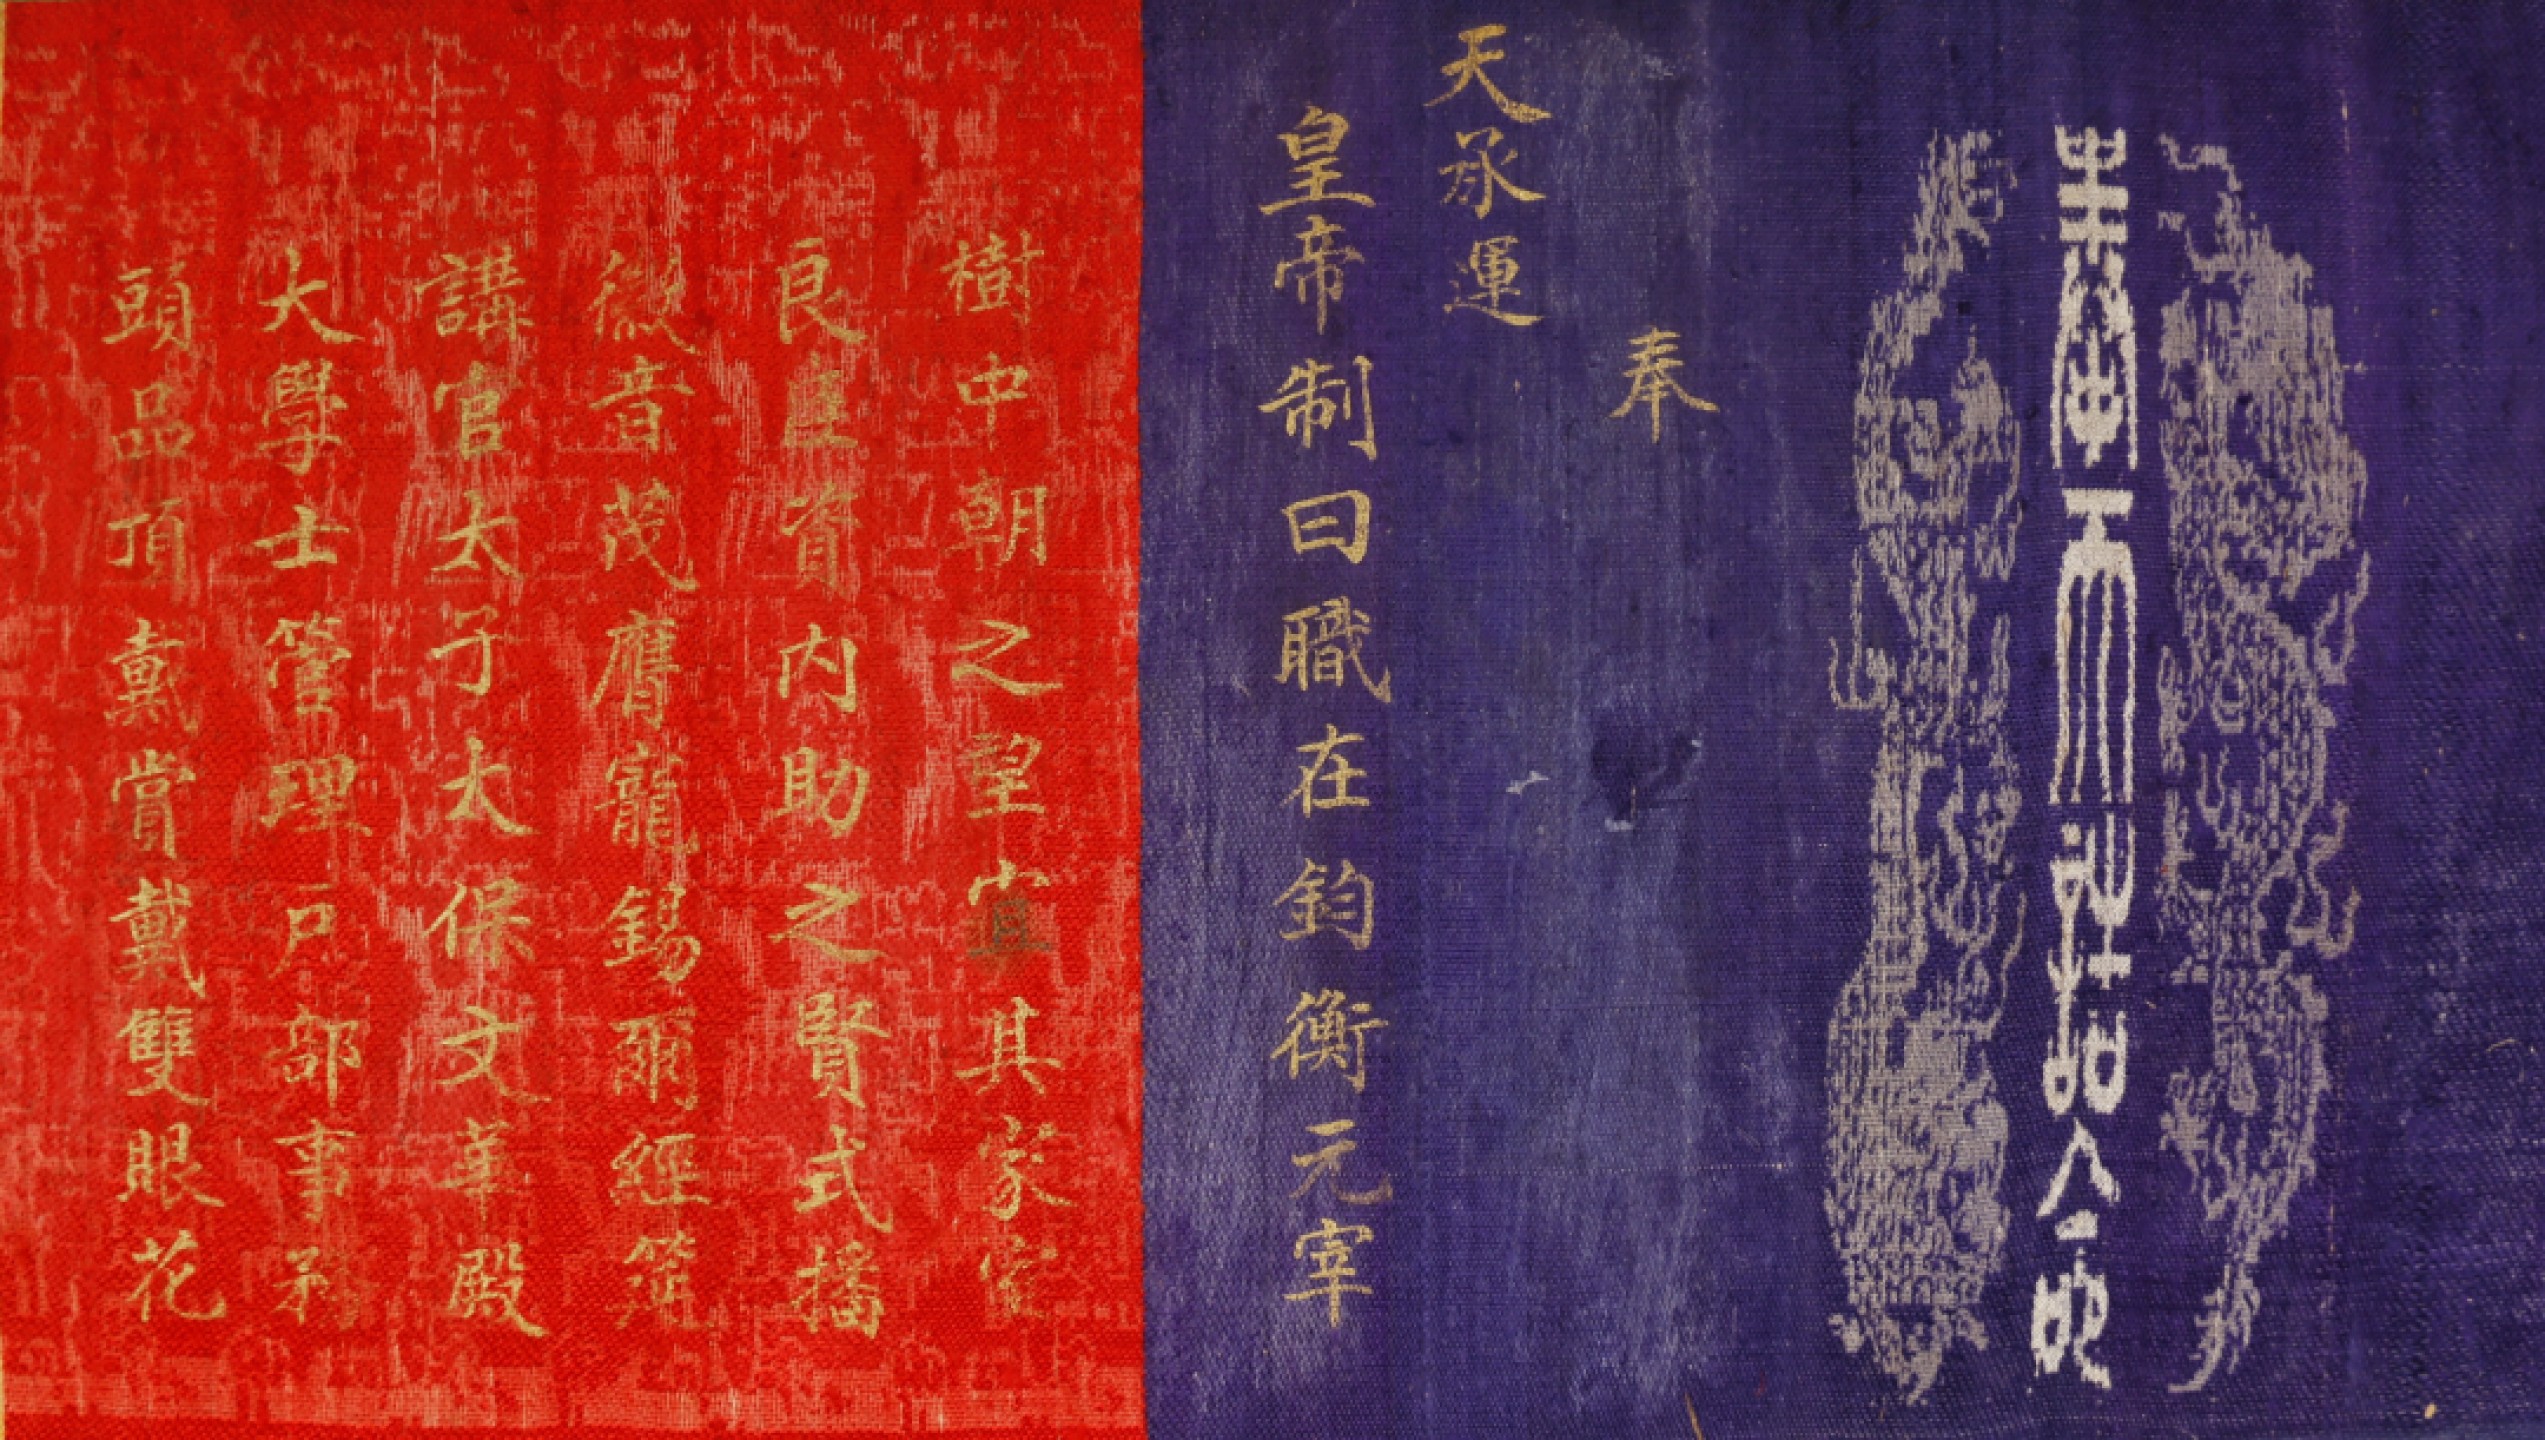 奉天誥命
奉
天承運
皇帝制曰職在鈞衡元宰
樹中朝之望宜其家室
良臣資内助之賢式播
徽音茂膺寵錫爾經筵
講官太子太保文華殿
大學士管理戶部事務
頭品頂戴賞戴雙眼花